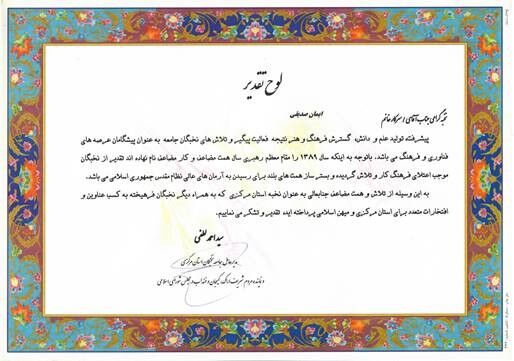 لوح تقدیر
ایمان صدیقی
نخبه گرامی جناب آقای / سرکار خانم
پیشرفته تولید علم و دانش، گسترش فرهنگ و هنر نتیجه فعالیت پیگیر و تلاش های نخبگان جامعه به عنوان پیشگامان عرصه های
فناوری و فرهنگی می باشد. باتوجه به اینکه سال ۱۳۸۹ را مقام معظم رهبری سال همت مضاعف و کار مضاعف نام نهاده اند تقدیر از نخبگان
موجب اعتلای فرهنگ کار و تلاش گردیده و بستر ساز همت های بلند برای رسیدن به آرمان های عالی نظام مقدس جمهوری اسلامی می باشد.
به این وسیله از تلاش و همت مضاعف جنابعالی به عنوان نخبه استان مرکزی که به همراه دیگر نخبگان فرهیخته به کسب عناوین و
افتخارات متعدد برای استان مرکزی و میهن اسلامی پرداخته اید، تقدیر و تشکر می نماییم.
سید احمد لطفی
مدیرعامل جامعه نخبگان استان مرکزی
و نماینده مردم شریف اراک، کمیجان و خنداب در مجلس شورای اسلامی